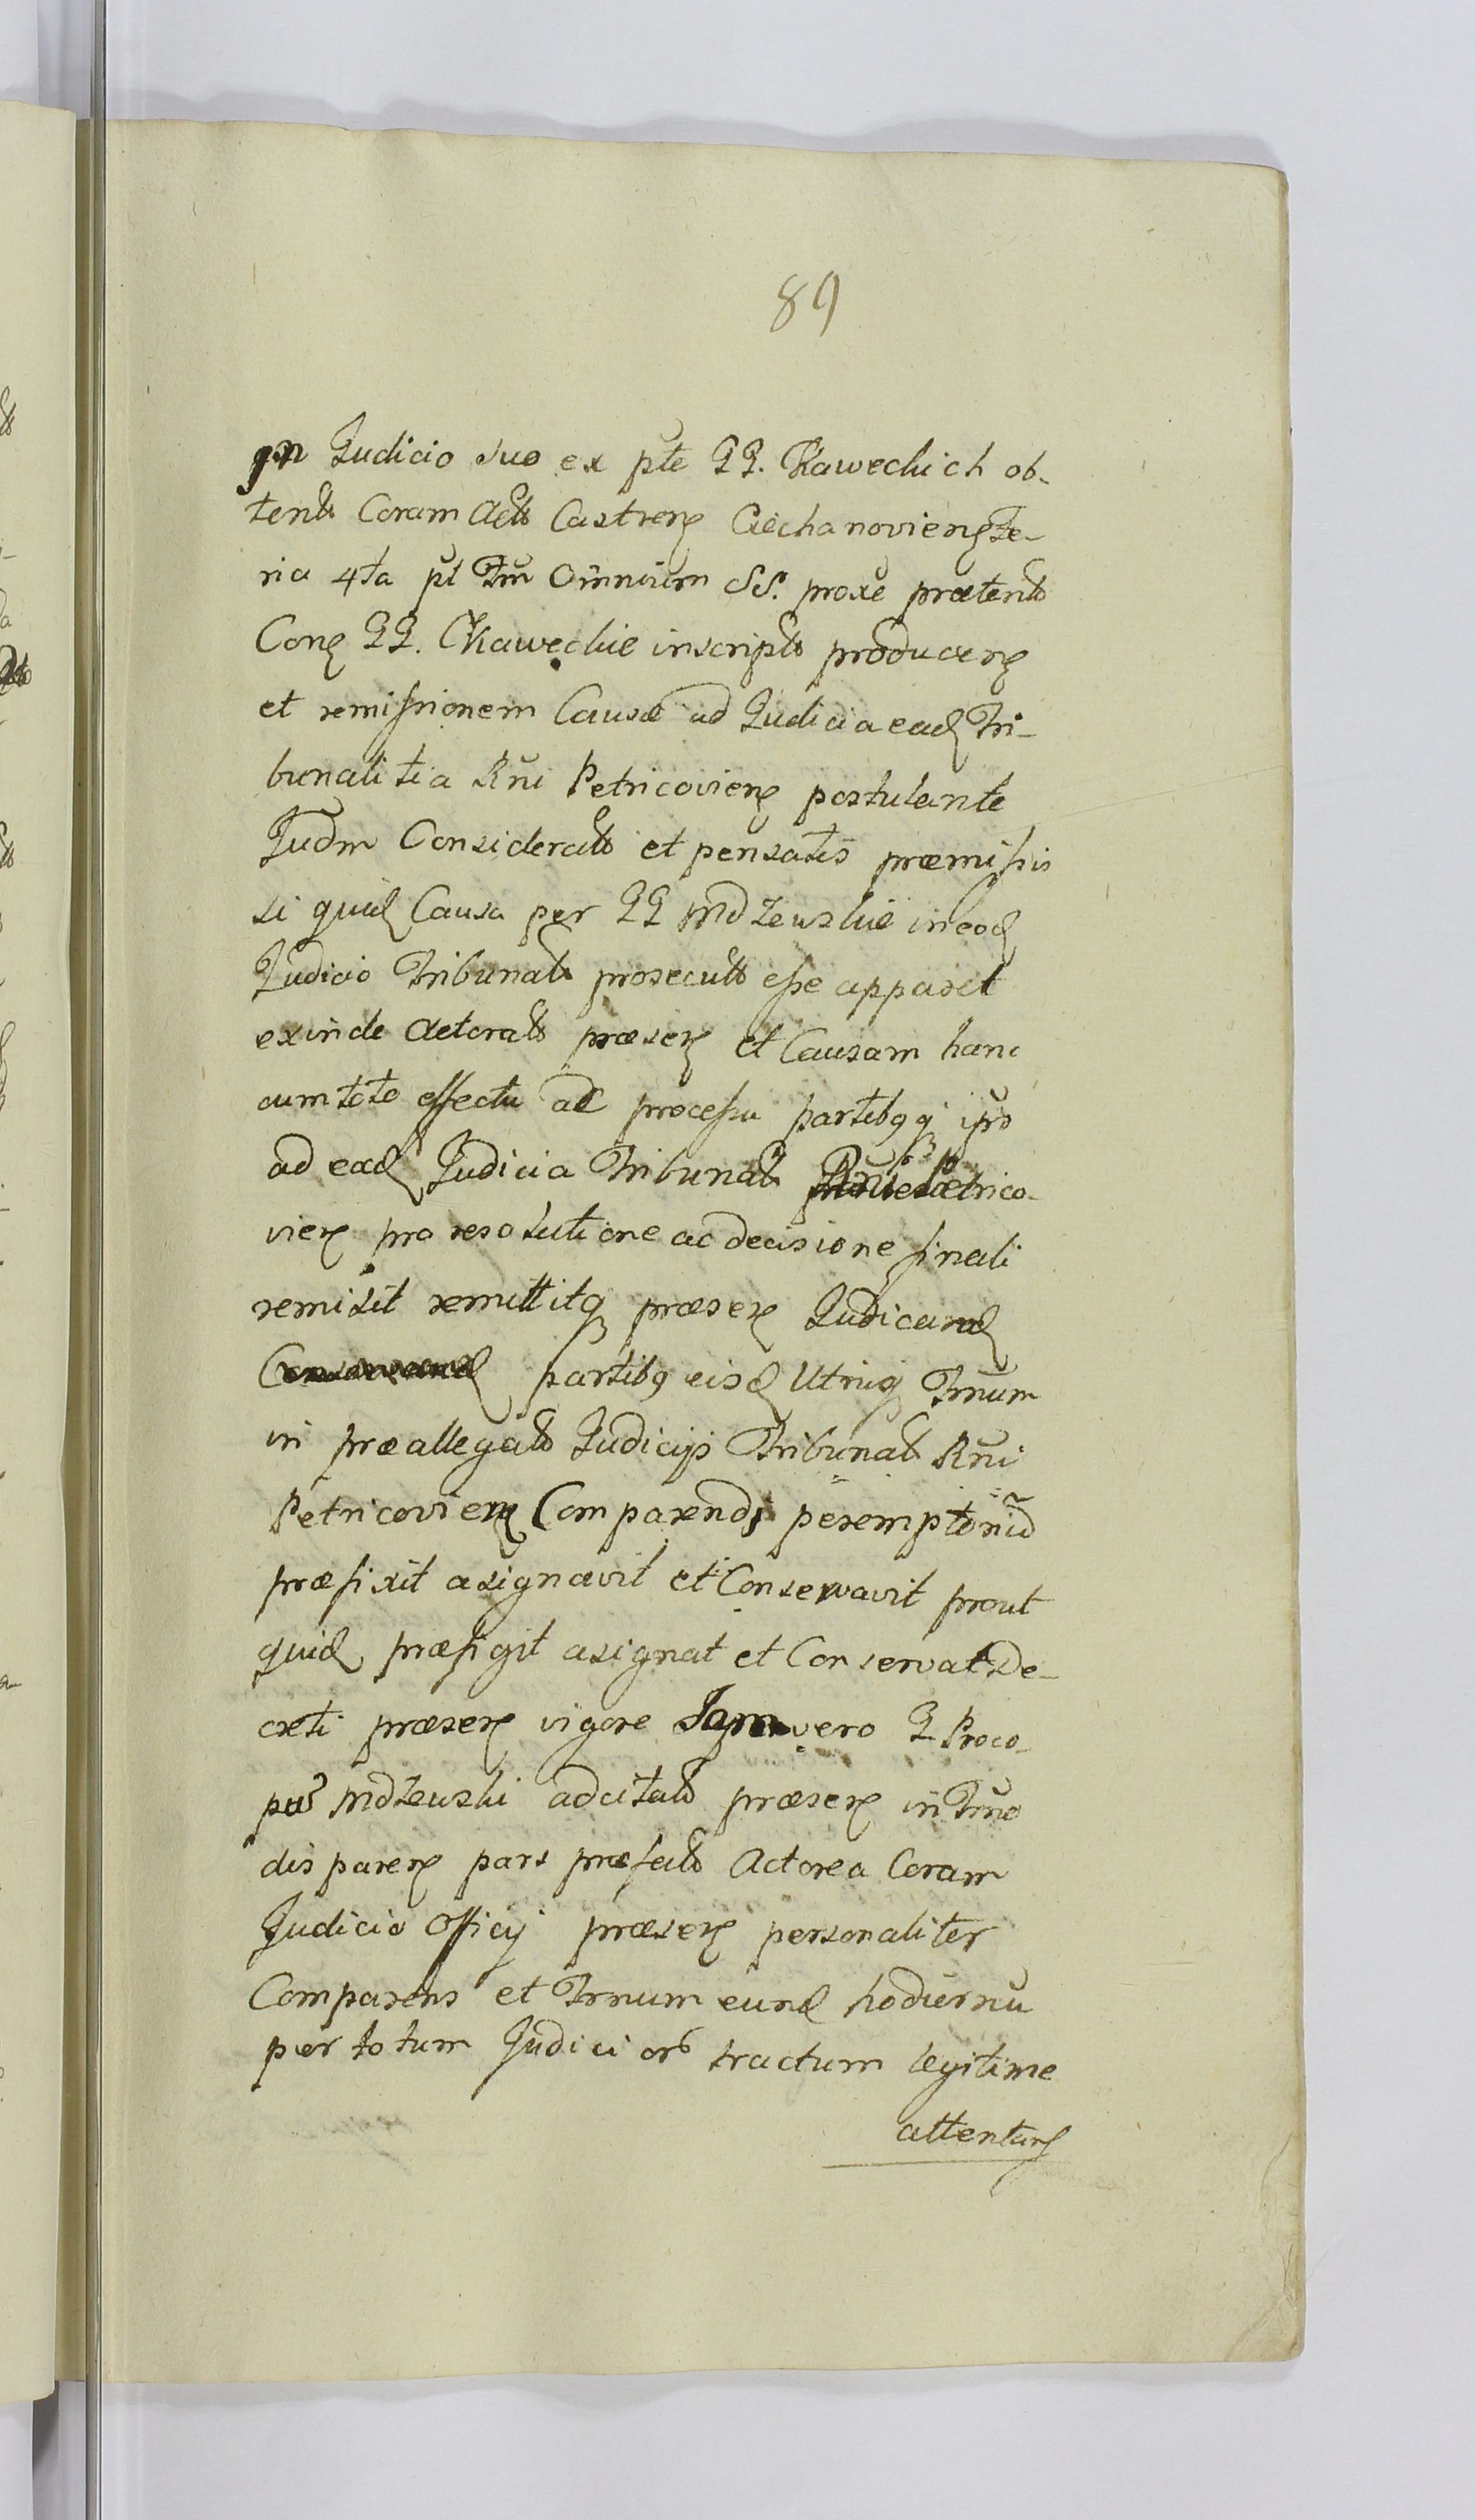 89
in Judicio suo ex pte GG. Kaweckich ob-
tent Coram Actis Castren Ciechanovien Fe-
ria 4ta pt Fm Omnium SS. proxe praeterit
Con GG. Kaweckie inscript producen
et remissionem Causae ad Judicia ead Tri-
bunalitia Rni Petricovien postulante
Judm Considerat et pensatis praemissis
si quid Causa per GG Mdzewskie in eod
Judicio Tribunal prosecut esse apparet
exinde Actorat praesen et Causam hanc
cum toto effectu ac processu partibq q ipso
ad ead Judicia Tribunal Petrico-
vien pro resolutione ac decisione finali
remisit remittitq praesen Judicand
partibq eisd Utriq Trnum
in praeallegat Judicijs Tribunal Rni
Petricovien Comparendi peremptorid
praefixit asignavit et Conservavit prout
quid praefigit asignat et Conservat De-
creti praesen vigore Jam vero G Proco-
pus Mdzewski adcitat praesen in Trno
disparen pars praefat Actorea Coram
Judicio Officij praesen personaliter
Comparens et Trnum eund hodiernu
per totum Judicior tractum legitime
attentan